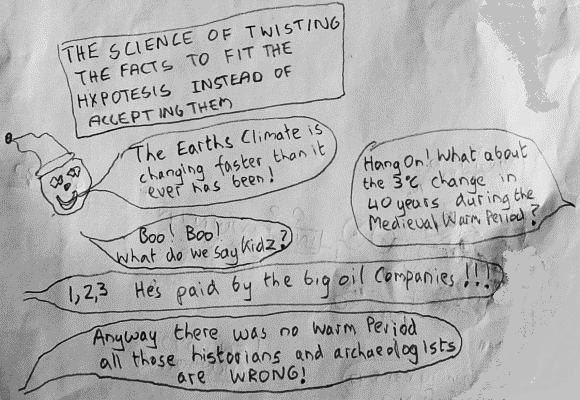 THE SCIENCE OF TWISTING
THE FACTS TO FIT THE
HXPOTESIS INSTEAD OF
ACCEPTING THEM
The Earths Climate is
changing faster than it
ever has been!
Hang On! What about
the 3°C change in
40 years during the
Medieval Warm Period?
Boo! Boo!
What do we say Kidz?
1,2,3 He's paid by the big oil Companies!!!
Anyway there was no warm Period
all those historians and archaeologists
are WRONG!